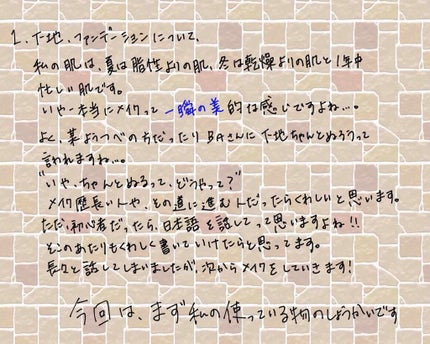 1. 下地、ファンデーションについて、
私の肌は、夏は脂性よりの肌、冬は乾燥よりの肌と1年中
忙しい肌です。
いやー本当にメイクって一瞬の美的な感じですよね…。
よく、某ようつべの方だったりBAさんに下地ちゃんとぬろうって
言われますね…。
"いや、ちゃんとぬるって、どうやって?"
メイク歴長い人や、その道に進む人だったらくわしいと思います。
ただ、初心者だったら、日本語を話してって思いますよね!!
そこのあたりもくわしく書いていけたらと思ってます。
長々と話してしまいましたが、次からメイクをしていきます!
今回は、まず私の使っている物のしょうかいです